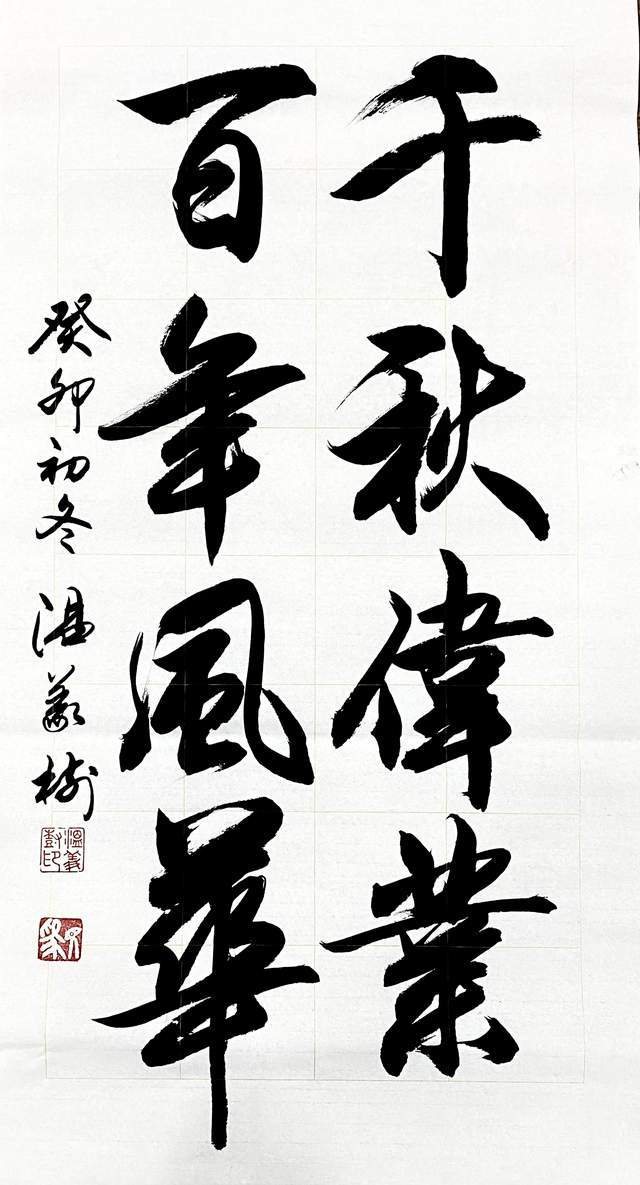 千秋偉業
百年風華
癸卯初冬 温義樹